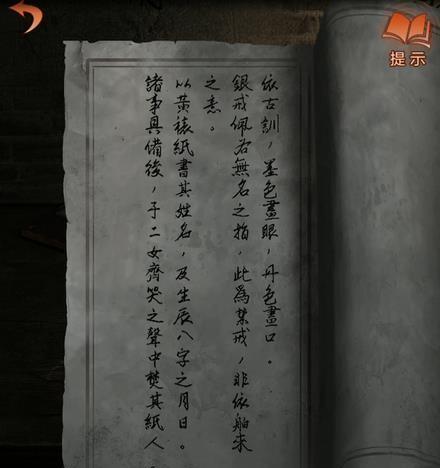 依古訓，墨色畫眼，丹色畫口。
銀戒佩右無名之指，此為禁戒，非依舶來
之意。
以黃裱紙書其姓名，及生辰八字之月日。
諸事具備後，于二女齊哭之聲中焚其紙人
提示